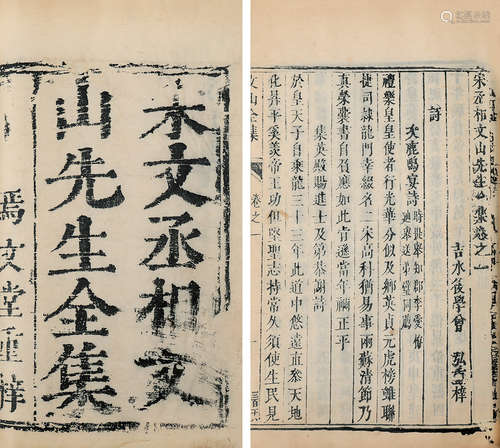 宋文丞相文
山先生全集
焉文堂重梓
宋丞相文山先生全集卷之一
吉水後學曾 弘 重梓
詩
次鹿鳴宴詩
時提舉知郡李愛梅
禮樂皇皇使者行光華分似及鄉英貞元虎榜雖聯
捷司隸龍門幸綴名二宋高科猶易事兩蘇清節乃
真榮囊書自負應如此肯遜當年禰正平
集英殿賜進士及第恭謝詩
於皇天子自乘龍三十三年此道中悠遠直參天地
化昇平奚羨帝王功但堅聖志持常久須使生民見
文山全集 卷之一